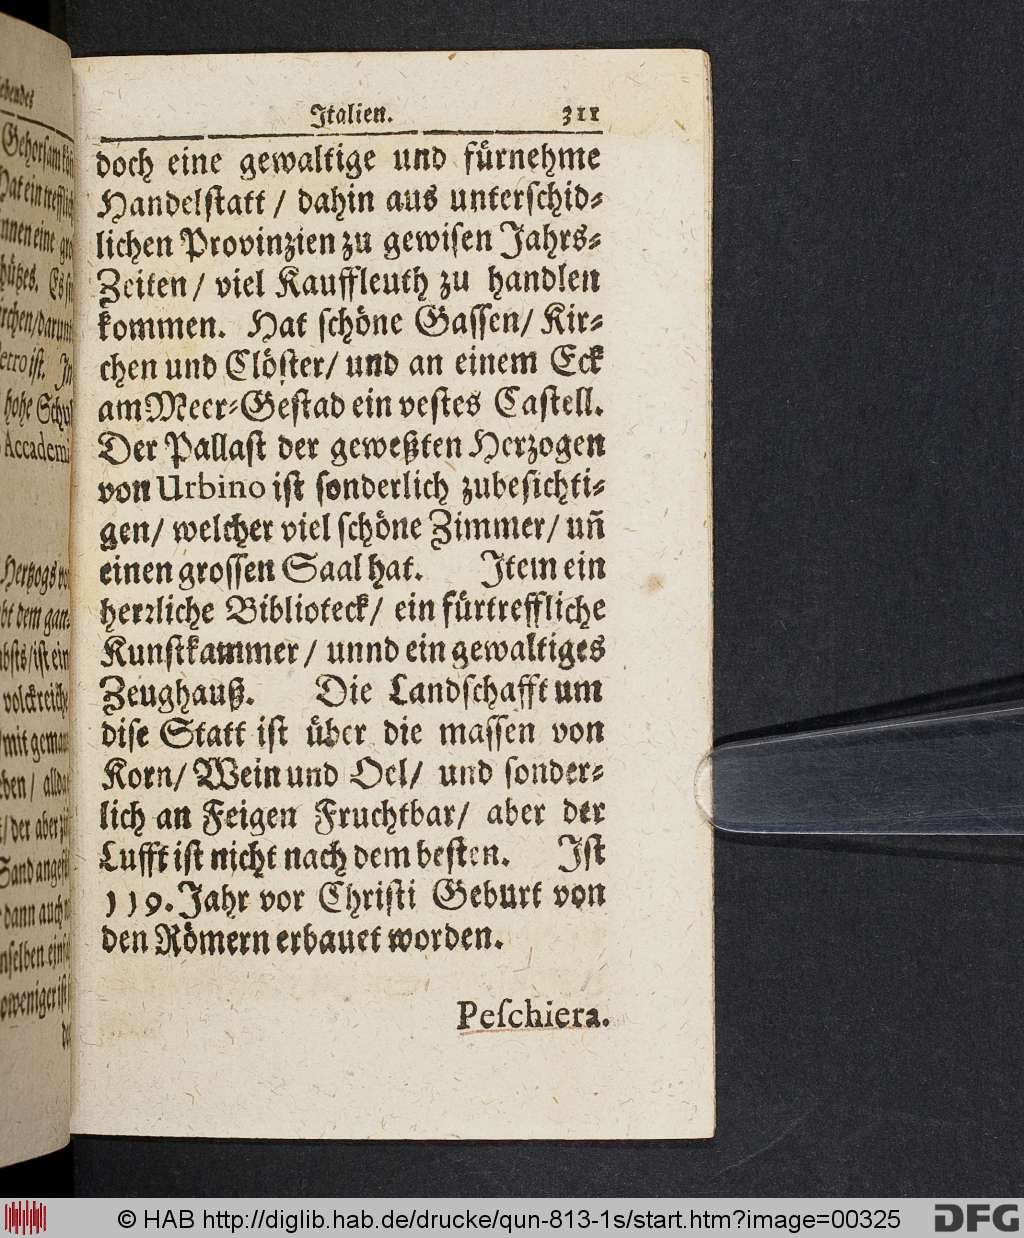 Italien. 311
doch eine gewaltige und fürnehme
Handelstatt / dahin aus unterschid-
lichen Provinzien zu gewisen Jahrs-
Zeiten / viel Kauffleuth zu handlen
kommen. Hat schöne Gassen / Kir-
chen und Clöster / und an einem Eck
am Meer-Gestad ein vestes Castell.
Der Pallast der geweßten Herzogen
von Urbino ist sonderlich zubesichti-
gen / welcher viel schöne Zimmer / uñ
einen grossen Saal hat. Item ein
herrliche Biblioteck / ein fürtreffliche
Kunstkammer / unnd ein gewaltiges
Zeughauß. Die Landschafft um
dise Statt ist über die massen von
Korn / Wein und Oel / und sonder-
lich an Feigen Fruchtbar / aber der
Lufft ist nicht nach dem besten. Ist
119. Jahr vor Christi Geburt von
den Römern erbauet worden.
Peschiera.
© HAB http://diglib.hab.de/drucke/qun-813-1s/start.htm?image=00325
DFG